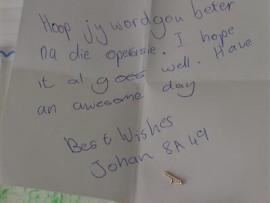 Hoop jy word gou beter
na die operasie. I hope
it al goes well. Have
an awesome day
Best Wishes
Johan 8A49